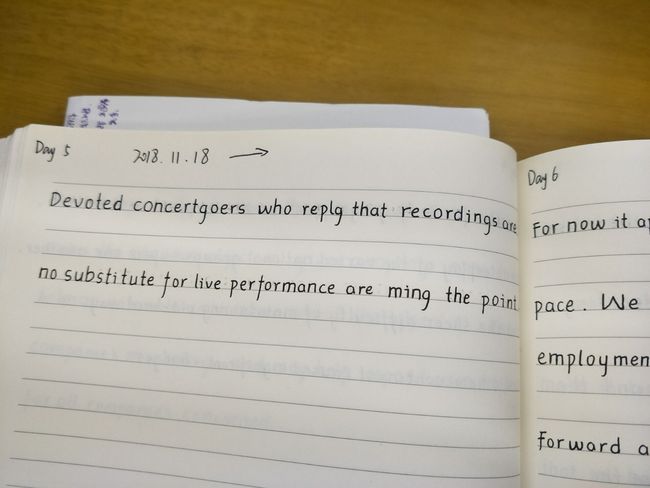 Day 5 2018.11.18 →
Devoted concertgoers who replg that recordings are
no substitute for live performance are ming the point
Day 6
For now it
pace. We
employmen
Forward a